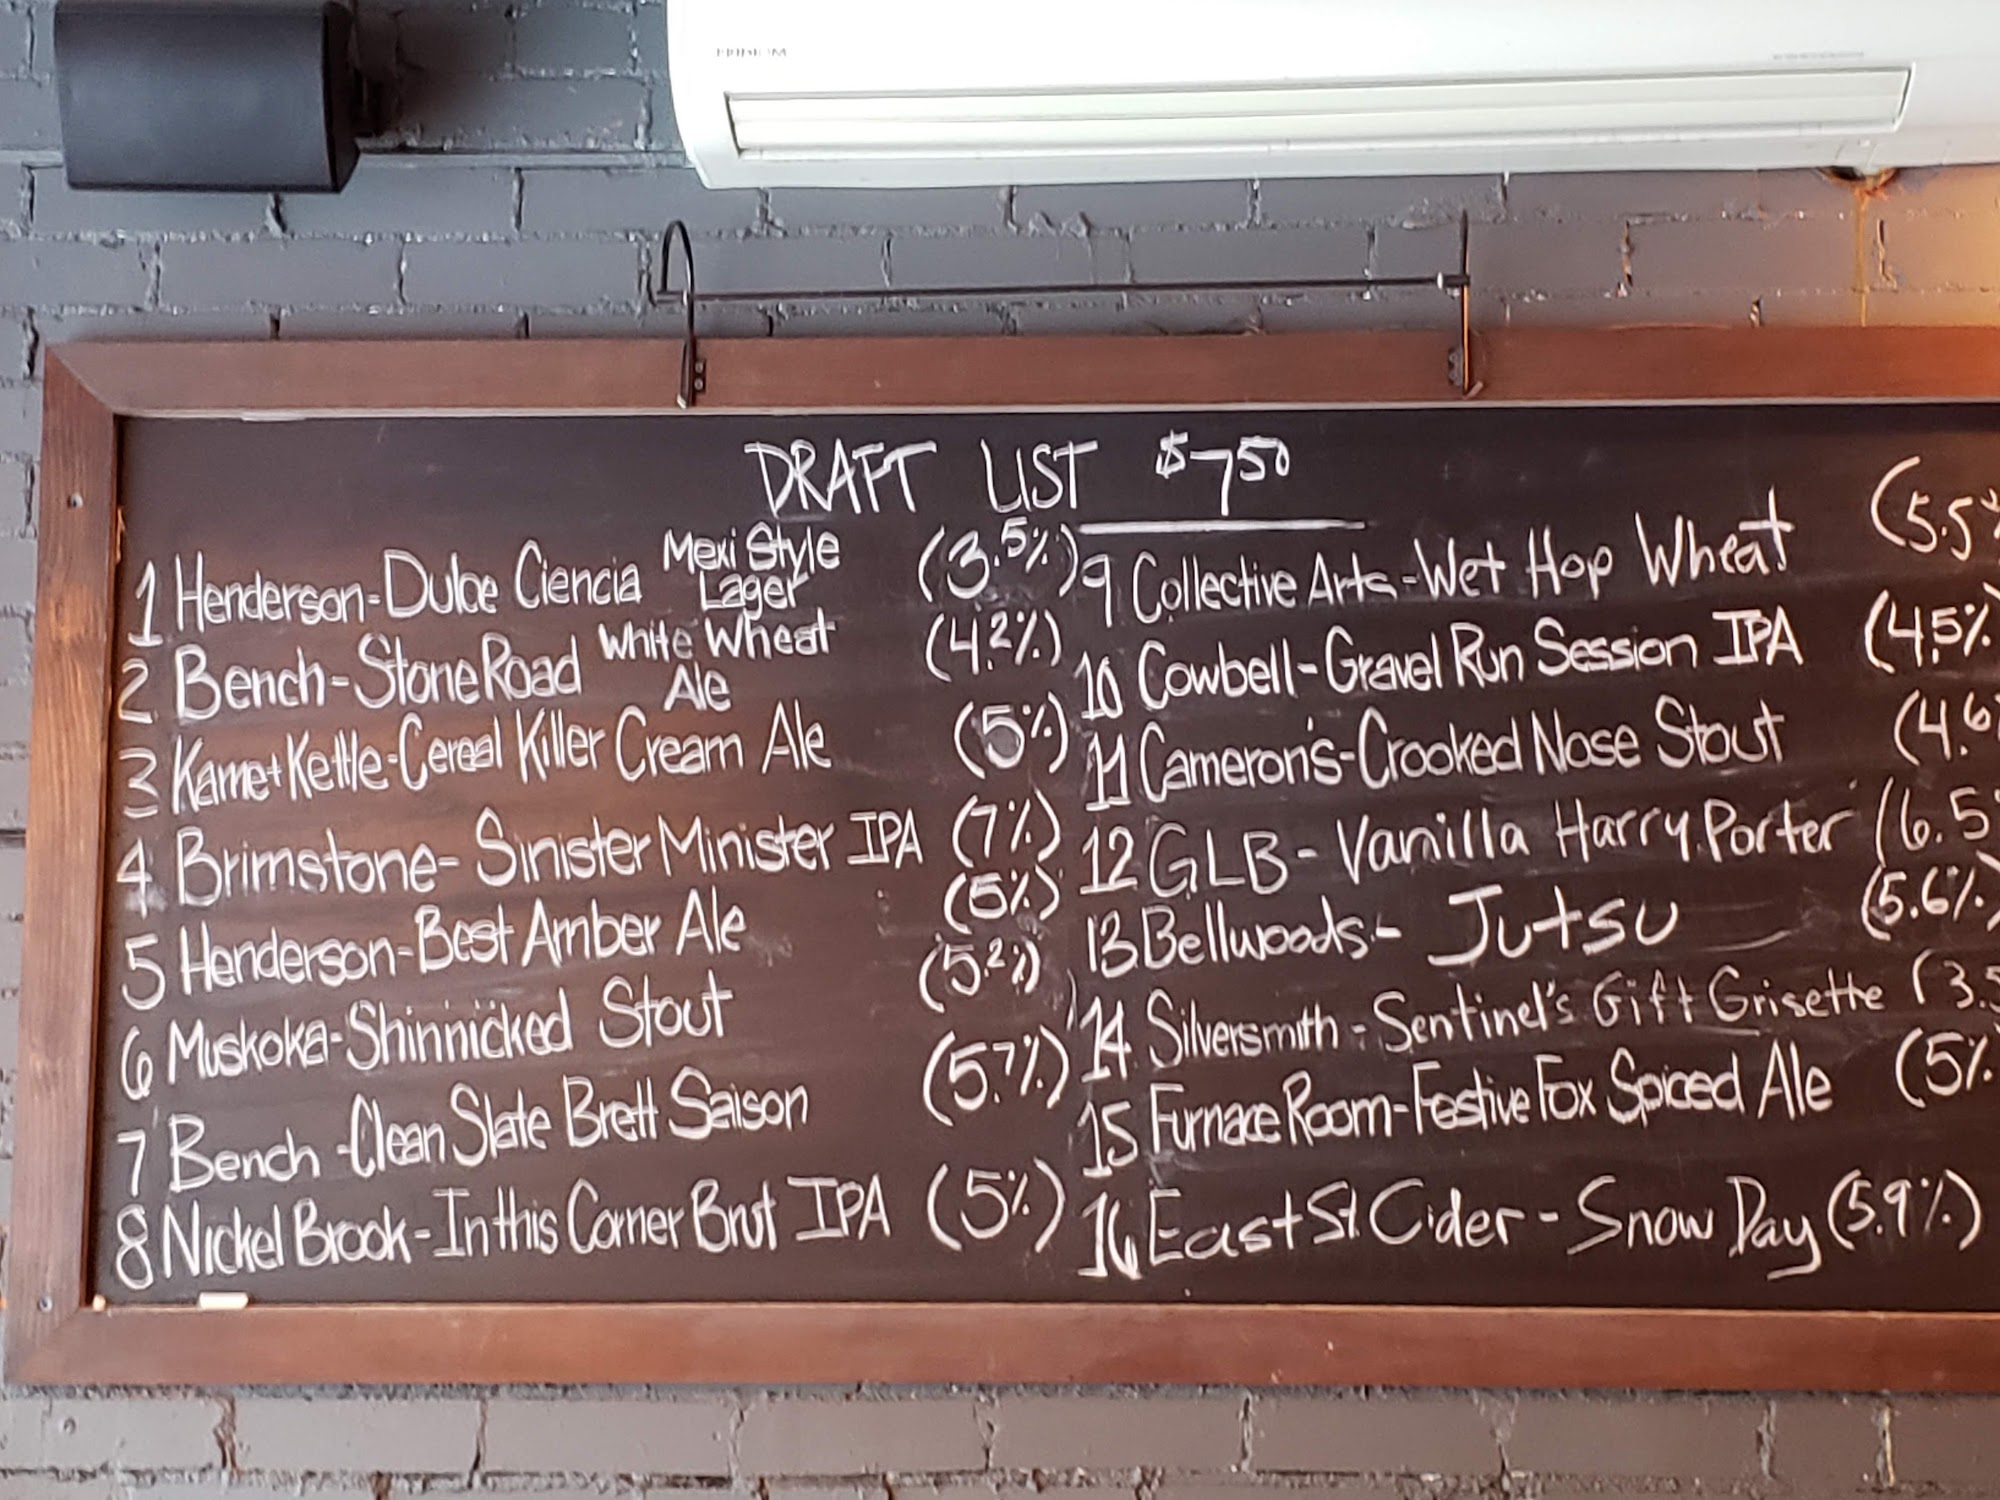 DRAFT LIST $7.50
1 Henderson-Dulce Ciencia Mexi Style Lager (3.5%)
2 Bench-Stone Road White Wheat Ale (4.2%)
3 Kame+Kettle-Cereal Killer Cream Ale (5%)
4 Brimstone-Sinister Minister IPA (7%)
5 Henderson-Best Amber Ale (5%)
6 Muskoka-Shinnicked Stout (5.2%)
7 Bench-Clean Slate Brett Saison (5.7%)
8 Nickel Brook-In this Corner Brut IPA (5%)
9 Collective Arts-Wet Hop Wheat (5.5%
10 Cowbell-Gravel Run Session IPA (4.5%
11 Cameron's-Crooked Nose Stout (4.6
12 GLB-Vanilla Harry Porter (6.5
13 Bellwoods-Jutsu (5.6%)
14 Silversmith-Sentinel's Gift Grisette (3.5
15 Furnace Room-Festive Fox Spiced Ale (5%
16 East St. Cider-Snow Day (5.9%)